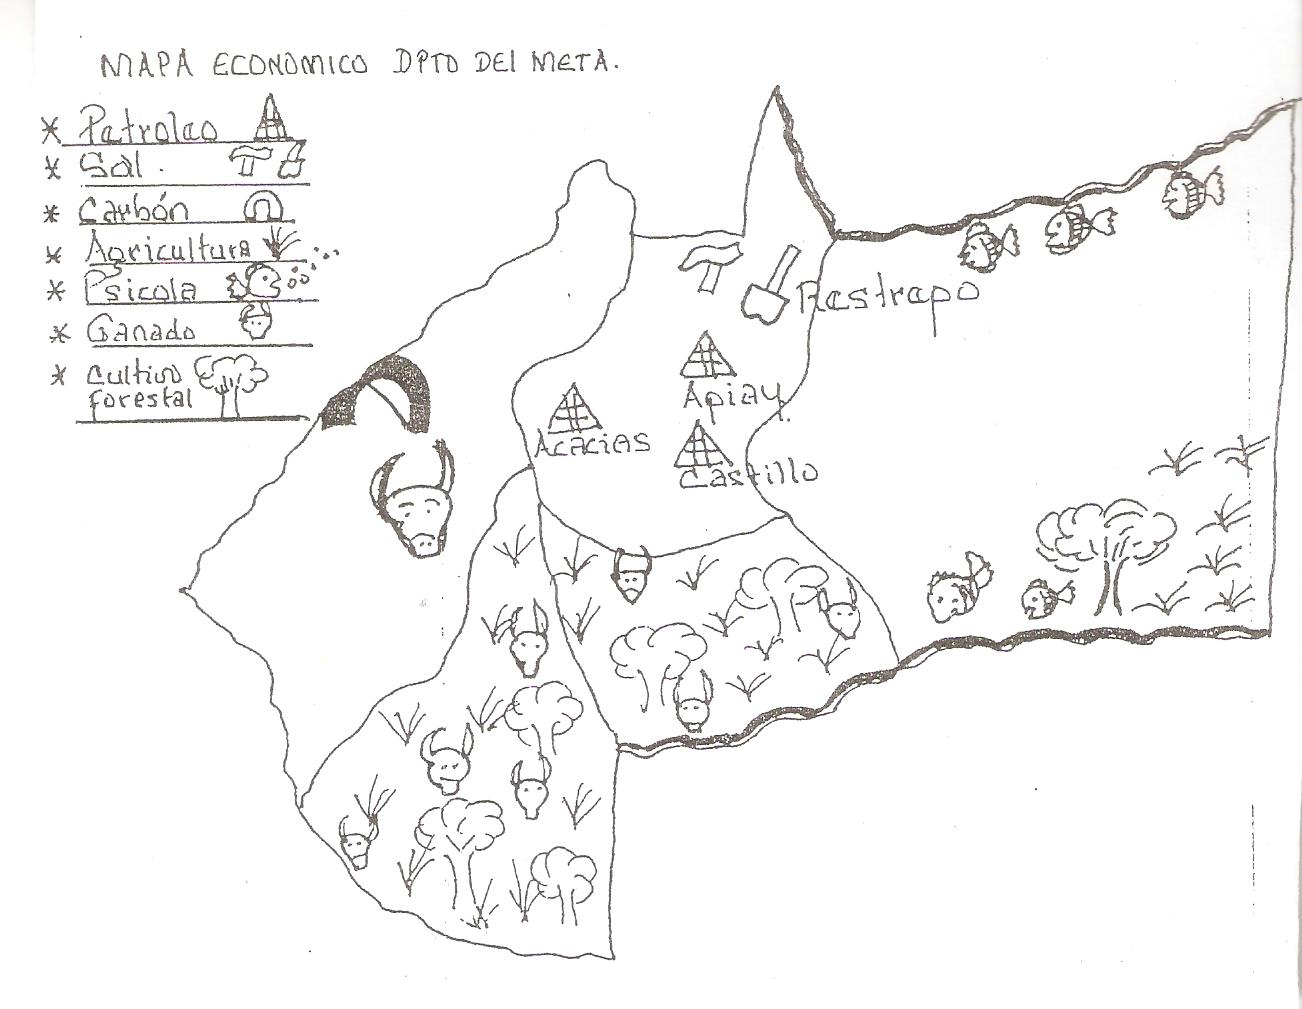 MAPA ECONOMICO DPTO DEL META.
* Petroleo
* Sal.
* Carbón
* Agricultura
* Psicola
* Ganado
* Cultivo
forestal
Restrepo
Apiay.
Acacias
Castillo